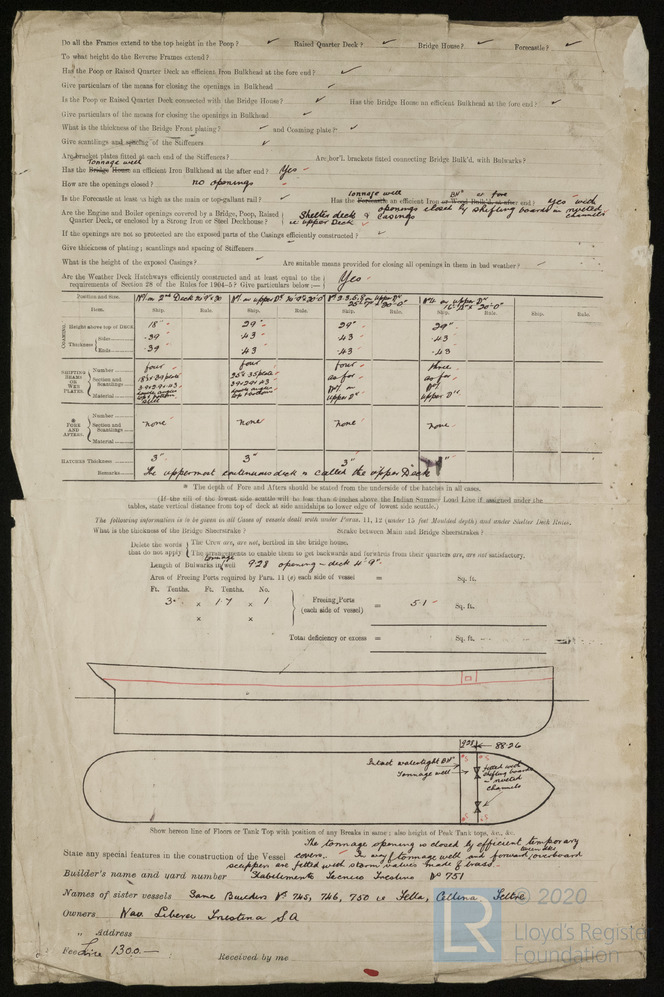 Do all the Frames extend to the top height in the Poop? ✓ Raised Quarter Deck? ✓ Bridge House? ✓ Forecastle? ✓
To what height do the Reverse Frames extend?
Has the Poop or Raised Quarter Deck an efficient Iron Bulkhead at the fore end? ✓
Give particulars of the means for closing the openings in Bulkhead
Is the Poop or Raised Quarter Deck connected with the Bridge House? ✓ Has the Bridge House an efficient Bulkhead at the fore end? ✓
Give particulars of the means for closing the openings in Bulkhead ✓
What is the thickness of the Bridge Front plating? ✓ and Coaming plate? ✓
Give scantlings and spacing of the Stiffeners ✓
Are bracket plates fitted at each end of the Stiffeners? Are hor'l. brackets fitted connecting Bridge Bulk'd. with Bulwarks?
tonnage well
Has the Bridge House an efficient Iron Bulkhead at the after end? Yes
How are the openings closed? no openings
tonnage well BHd at fore
Is the Forecastle at least as high as the main or top-gallant rail? ✓ Has the Forecastle an efficient Iron or Wood Bulk'd at after end? yes with
openings closed by shifting boards in riveted channels
Are the Engine and Boiler openings covered by a Bridge, Poop, Raised Quarter Deck, or enclosed by a Strong Iron or Steel Deckhouse? Shelter deck & casings
ie upper Deck
If the openings are not so protected are the exposed parts of the Casings efficiently constructed? ✓
Give thickness of plating; scantlings and spacing of Stiffeners
What is the height of the exposed Casings? ✓ Are suitable means provided for closing all openings in them in bad weather? ✓
Are the Weather Deck Hatchways efficiently constructed and at least equal to the
requirements of Section 28 of the Rules for 1904-5? Give particulars below:— Yes
Position and Size. No 1 on 2nd Deck No 1 on upper Dk No 2.3.5.6 on upper Dk No 4 on upper Dk
Item. Ship. Rule. Ship. Rule. Ship. Rule. Ship. Rule. Ship. Rule.
COAMING. Height above top of Deck 18" 29" 29" 29"
Thickness Sides .39 .43 .43 .43
Ends .39 .43 .43 .43
SHIFTING BEAMS OR WEB PLATES. Number four four four three
Section and Scantlings as for as for
Material No 1 on upper Dk No 1 upper Dk
* FORE AND AFTERS. Number
Section and Scantlings none none none none
Material
HATCHES Thickness 3" 3" 3"
Remarks The uppermost continuous deck is called the upper Deck
* The depth of Fore and Afters should be stated from the underside of the hatches in all cases.
(If the sill of the lowest side scuttle will be less than 6 inches above the Indian Summer Load Line if assigned under the
tables, state vertical distance from top of deck at side amidships to lower edge of lowest side scuttle.)
The following information is to be given in all Cases of vessels dealt with under Paras. 11, 12 (under 15 feet Moulded depth) and under Shelter Deck Rules.
What is the thickness of the Bridge Sheerstrake? Strake between Main and Bridge Sheerstrakes?
Delete the words that do not apply The Crew are, are not, berthed in the bridge house.
The arrangements to enable them to get backwards and forwards from their quarters are, are not satisfactory.
tonnage
Length of Bulwarks in well 9.28 opening in deck 4'.9".
Area of Freeing Ports required by Para. 11 (e) each side of vessel = Sq. ft.
Ft. Tenths. Ft. Tenths. No.
3. × 1.7 × 1 Freeing Ports = 5.1 Sq. ft.
× × (each side of vessel)
Total deficiency or excess = Sq. ft.
9.28 88.26
Intact watertight BHd
Tonnage well
fitted with
shifting boards
in riveted
channels
Show hereon line of Floors or Tank Top with position of any Breaks in same; also height of Peak Tank tops, &c., &c.
The tonnage opening is closed by efficient temporary
State any special features in the construction of the Vessel covers. In way of tonnage well and forward overboard
scuppers are fitted with storm valves made of brass.
Builder's name and yard number Stabilimento Tecnico Triestino No 751
Names of sister vessels Same Builders Nos 745, 746, 750 ie Fella, Cellina, Feltre
Owners Nav. Libera Triestina S.A
" Address
Fee Lire 1300.—
Received by me
© 2020
LR
Lloyd's Register
Foundation